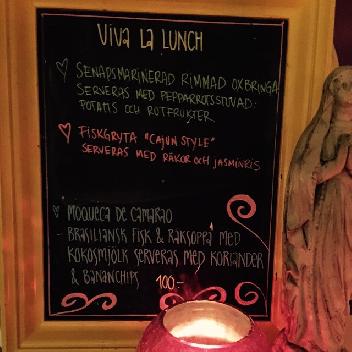 Viva La Lunch
Senapsmarinerad rimmad oxbringa
serveras med pepparrotsstuvad
potatis och rotfrukter
Fiskgryta "Cajun Style"
serveras med räkor och jasminris
Moqueca de Camarao
- Brasiliansk fisk & räksoppa med
kokosmjölk serveras med koriander
& bananchips 100:-